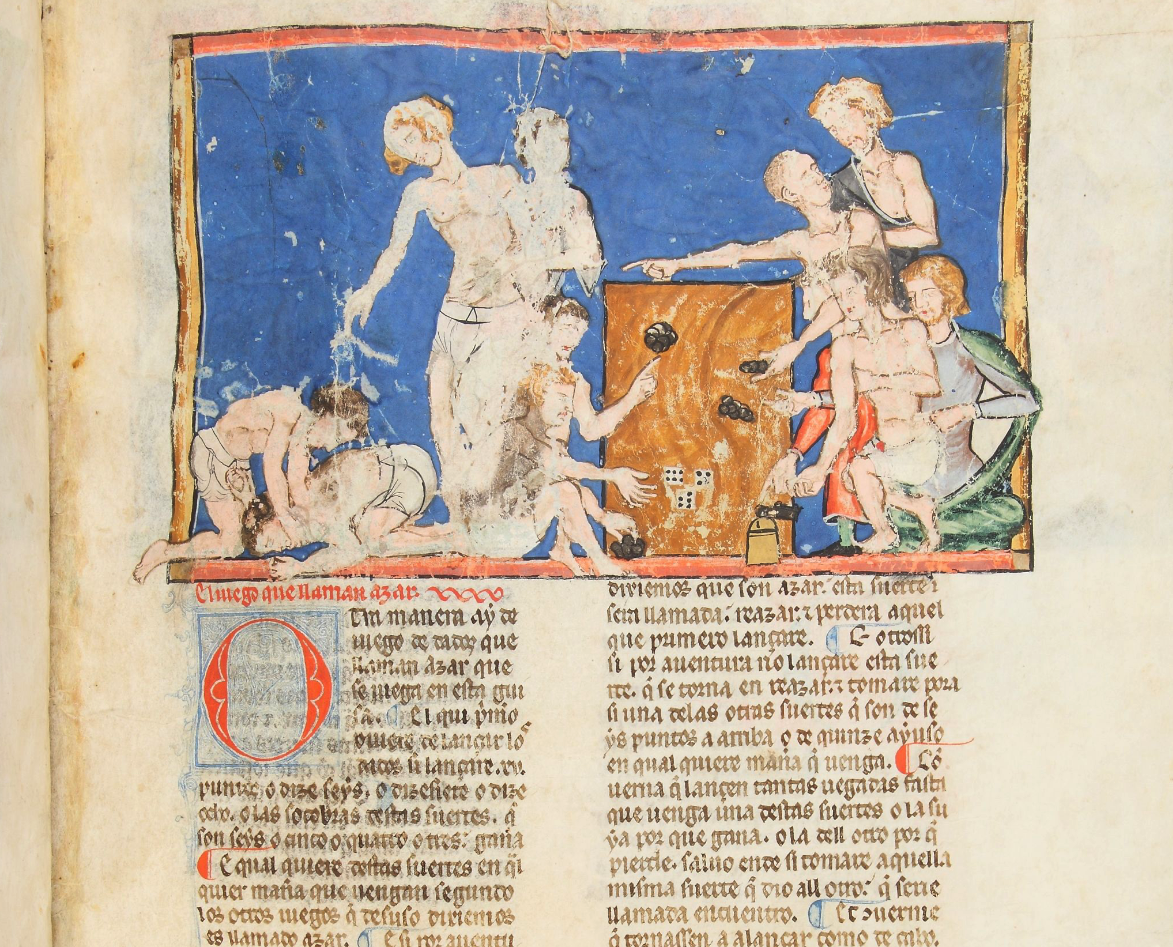 El iuego que llaman azar
Otra manera ay de
iuego de dados que
llaman azar que
se iuega en esta gui
sa. ¶ El qui pmo
ouiere de lançar los
dados si lançare .xv.
puntos o dize seys. o dizesiete o dize
ocho. o las soçobras destas suertes. q̃
son seys o cinco o quatro o tres: gana
¶ E qual quiere destas suertes en q̃l
quier mañа que uengan segundo
los otros iuegos q̃ desuso dixiemos
es llamado azar. ¶ E si por auentu
dixiemos que son azar. esta suerte
sera llamada: reazar. ⁊ perdera aquel
que primero lançare. ¶ E otrossi
si por auentura no lançare esta sue
rte. q̃ se torna en reazar. ⁊ tomare pora
si una delas otras suertes q̃ son de se
ys puntos a arriba o de quinze ayuso
en qual quiere mañа q̃ uenga. ¶ Cõ
uerna q̃ lancen tantas uegadas fasta
que uenga una destas suertes o la su
ya por que gana. o la dell otro por q̃
pierde. saluo ende si tomare aquella
misma suerte q̃ dio all otro: q̃ serie
llamada encuentro. ¶ Et conuernie
q̃ tornassen a alançar como de cabo.